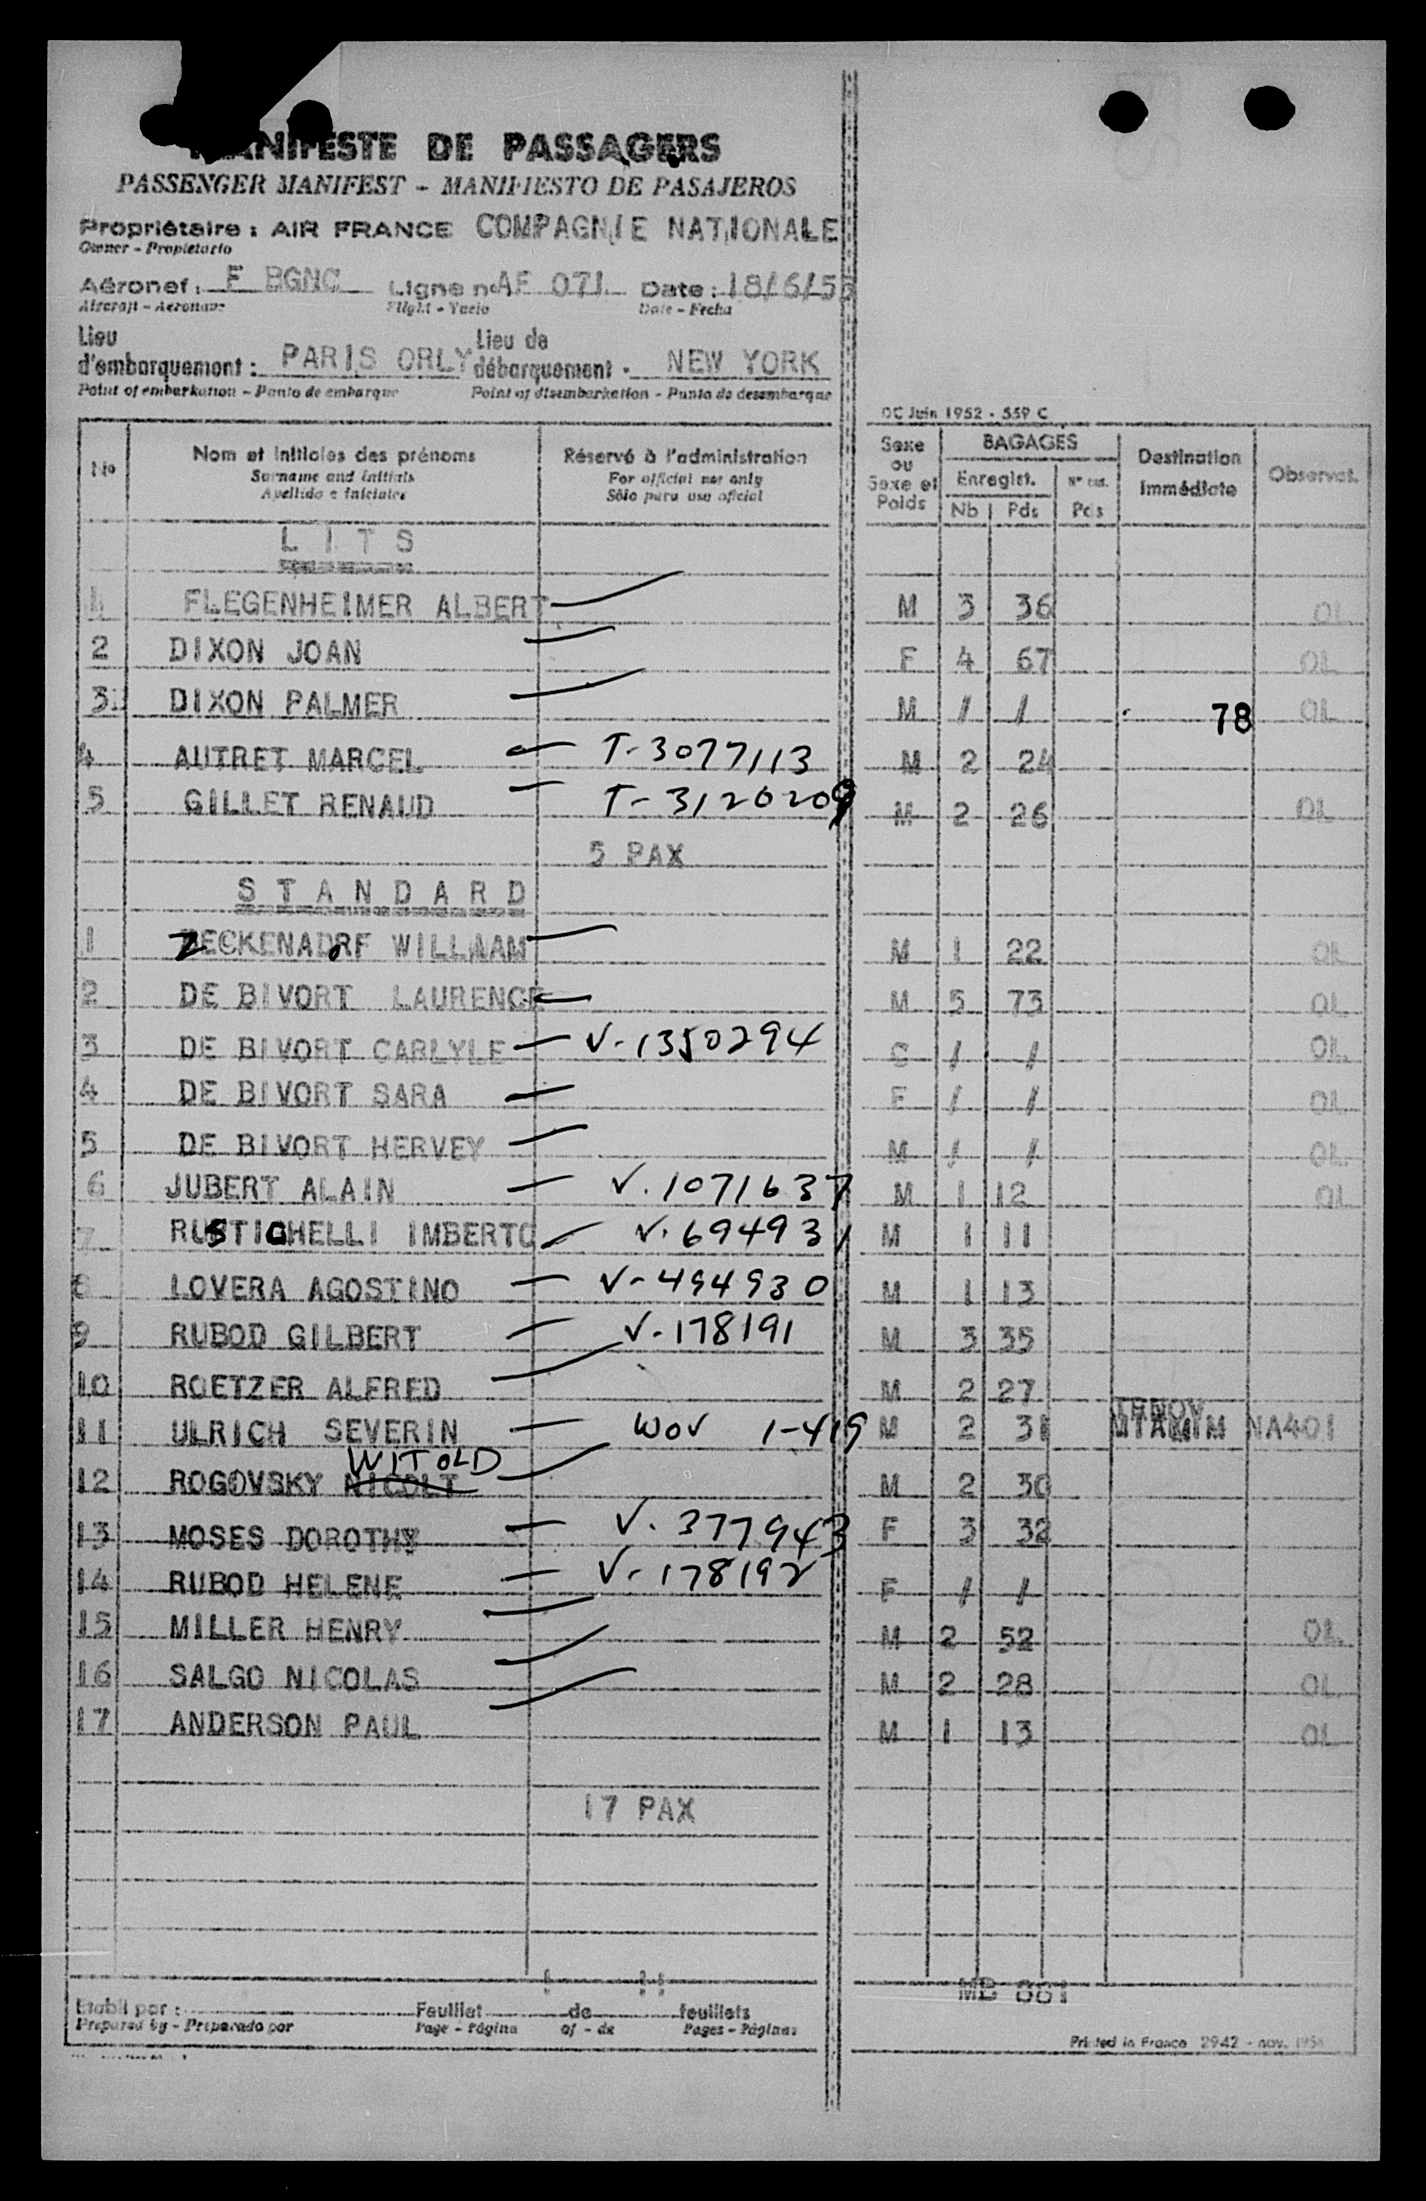 MANIFESTE DE PASSAGERS
PASSENGER MANIFEST - MANIFIESTO DE PASAJEROS
Propriétaire : AIR FRANCE COMPAGNIE NATIONALE
Owner - Propietario
Aéronef : F BGNC Ligne n° AF 071 Date : 18/6/55
Aircraft - Aeronave Flight - Vuelo Date - Fecha
Lieu d'embarquement : PARIS ORLY Lieu de débarquement : NEW YORK
Point of embarkation - Punto de embarque Point of disembarkation - Punto de desembarque
OC Juin 1952 - 559 C
No Nom et initiales des prénoms Réservé à l'administration Sexe ou Sexe et Poids BAGAGES Destination immédiate Observat.
Surname and initials For official use only Enregist. N° cad.
Apellido e iniciales Sólo para uso oficial Nb Pds Pds
L I T S
1 FLEGENHEIMER ALBERT M 3 36 OL
2 DIXON JOAN F 4 67 OL
3 DIXON PALMER M / / 78 OL
4 AUTRET MARCEL T-3077113 M 2 24
5 GILLET RENAUD T-3120209 M 2 26 OL
5 PAX
S T A N D A R D
1 ZECKENDORF WILLIAM M 1 22 OL
2 DE BIVORT LAURENCE M 5 73 OL
3 DE BIVORT CARLYLE V-1350294 C / / OL.
4 DE BIVORT SARA F / / OL
5 DE BIVORT HERVEY M / / OL.
6 JUBERT ALAIN V.1071637 M 1 12 OL
7 RUSTIGHELLI IMBERTO V.694931 M 1 11
8 LOVERA AGOSTINO V-494930 M 1 13
9 RUBOD GILBERT V-178191 M 3 35
10 ROETZER ALFRED M 2 27
11 ULRICH SEVERIN WOV 1-419 M 2 31 NA401
WITOLD
12 ROGOVSKY NICOLT M 2 30
13 MOSES DOROTHY V.377943 F 3 32
14 RUBOD HELENE V-178192 F / /
15 MILLER HENRY M 2 52 OL.
16 SALGO NICOLAS M 2 28 OL.
17 ANDERSON PAUL M 1 13 OL
17 PAX
MB 861
Etabli par : Feuillet de feuillets
Prepared by - Preparado por Page - Página of - de Pages - Páginas
Printed in France 2942 - nov.